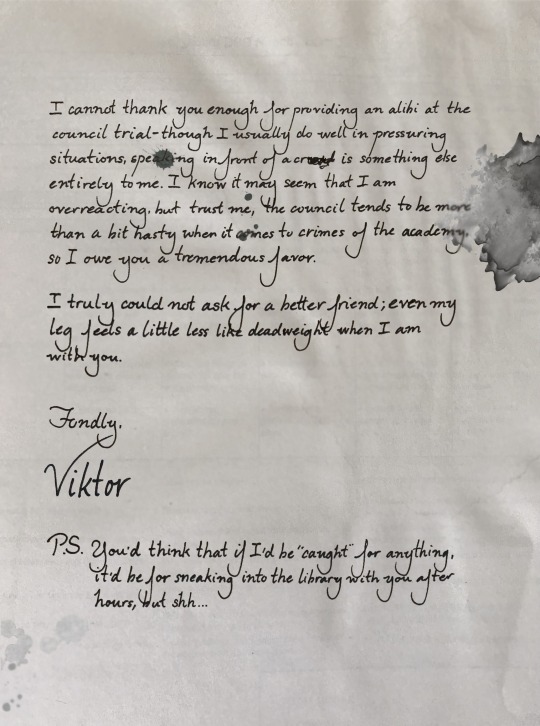 I cannot thank you enough for providing an alibi at the
council trial-though I usually do well in pressuring
situations, speaking in front of a crowd is something else
entirely to me. I know it may seem that I am
overreacting, but trust me, the council tends to be more
than a bit hasty when it comes to crimes of the academy,
so I owe you a tremendous favor.
I truly could not ask for a better friend; even my
leg feels a little less like deadweight when I am
with you.
Fondly,
Viktor
P.S. You'd think that if I'd be "caught" for anything,
it'd be for sneaking into the library with you after
hours, but shh...